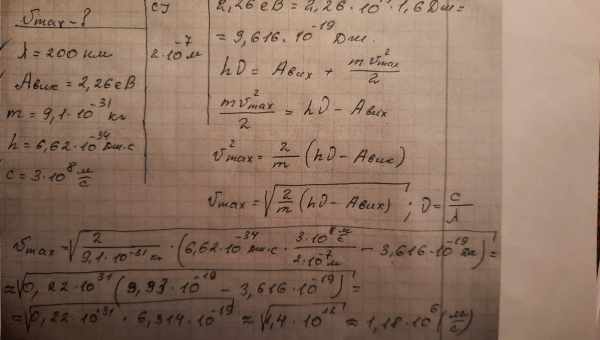 υmax - ?
λ = 200 км
Aвих = 2,26 еВ
m = 9,1·10⁻³¹ кг
h = 6,62·10⁻³⁴ Дж·с
c = 3·10⁸ м/с
СІ
2·10⁻⁷ м
2,26 еВ = 2,26·10⁻¹⁹·1,6 Дж =
= 3,616·10⁻¹⁹ Дж.
hν = Aвих + mυ²max/2
mυ²max/2 = hν - Aвих
υ²max = 2/m (hν - Aвих)
υmax = √(2/m (hν - Aвих)) ; ν = c/λ
υmax = √(2/(9,1·10⁻³¹ кг) · (6,62·10⁻³⁴ Дж·с · (3·10⁸ м/с)/(2·10⁷ м) - 3,616·10⁻¹⁹ Дж)) =
≈ √(0,22·10³¹ (9,93·10⁻¹⁹ - 3,616·10⁻¹⁹)) =
≈ √(0,22·10⁻³¹ · 6,314·10⁻¹⁹) ≈ √(1,4·10¹²) ≈ 1,18·10⁶ (м/с)